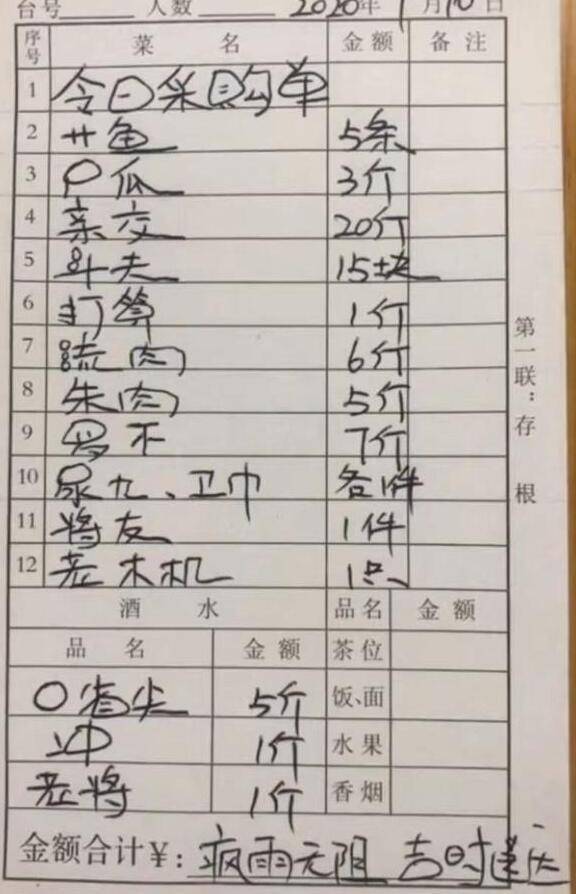 台号 人数 2020年1月10日
序号 菜名 金额 备注
1 今日采购单
2 廿鱼 5条
3 口瓜 3斤
4 亲交 20斤
5 斗夫 15块
6 打算 1斤
7 6斤
8 朱肉 5斤
9 罗不 7斤
10 尿九、卫巾 各1件
11 将友 1件
12 老木机 1只
第一联：存根
酒水 品名 金额
品名 金额 茶位
〇肖尖 5斤 饭、面
冲 1斤 水果
老将 1斤 香烟
金额合计￥: 疯雨无阻 吉时送